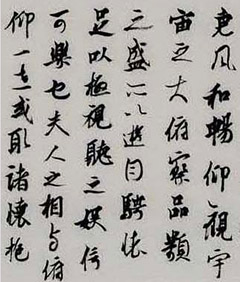 惠風和暢仰觀宇
宙之大俯察品類
之盛所以遊目騁懷
足以極視聽之娛信
可樂也夫人之相与俯
仰一世或取諸懷抱